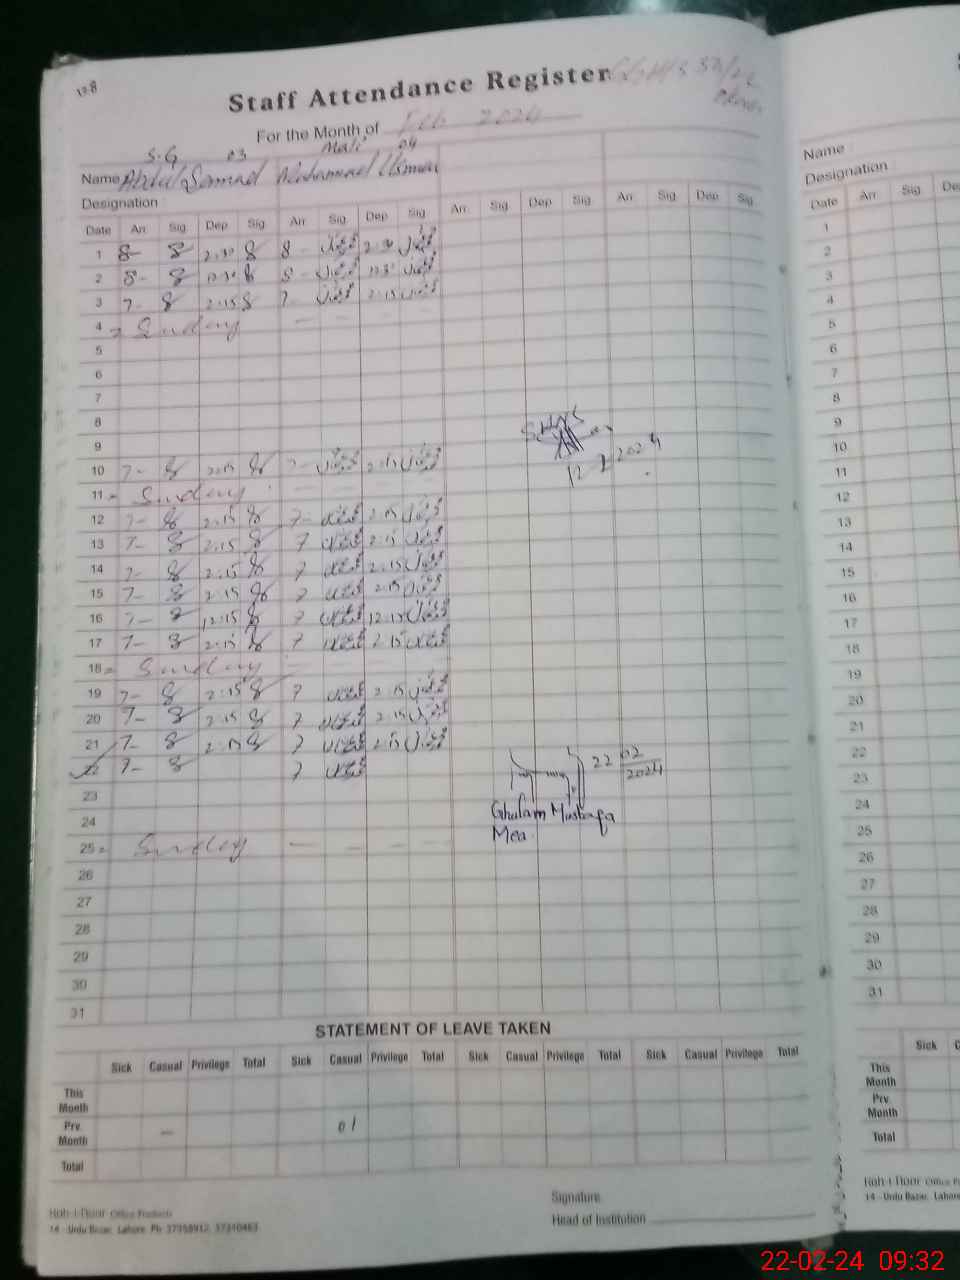 128
Staff Attendance Register
For the Month of Feb 2024
S.G 03 Mali 04
Name Abdul Samad Muhammad Usman
Designation
Date Arr Sig Dep Sig Arr Sig Dep Sig Arr Sig Dep Sig Arr Sig Dep Sig
1 8- 2.30 8 - 2.30
2 8- 12.30 8 - 12.30
3 7- 2.15 7 2.15
4 = Sunday
5
6
7
8
9
10 7- 2.15 7- 2.15
12 2 2024
11 = Sunday
12 7- 2.15 7- 2.15
13 7- 2.15 7 2.15
14 7- 2.15 7 2.15
15 7- 2.15 7 2.15
16 7- 12.15 7 12.15
17 7- 2.15 7 2.15
18 = Sunday
19 7- 2.15 7 2.15
20 7- 2.15 7 2.15
21 7- 2.15 7 2.15
22 7- 7
22 02
2024
Ghulam Mustafa
Mea.
23
24
25 = Sunday
26
27
28
29
30
31
STATEMENT OF LEAVE TAKEN
Sick Casual Privilege Total Sick Casual Privilege Total Sick Casual Privilege Total Sick Casual Privilege Total
This Month
Prv. Month — 01
Total
Signature
Head of Institution
Koh-i-Noor Office Products
14 - Urdu Bazar, Lahore. Ph: 37358912, 37310463
Name
Designation
Date Arr Sig
1
2
3
4
5
6
7
8
9
10
11
12
13
14
15
16
17
18
19
20
21
22
23
24
25
26
27
28
29
30
31
Sick
This Month
Prv. Month
Total
Koh-i-Noor Office
14 - Urdu Bazar, Lahore
22-02-24 09:32